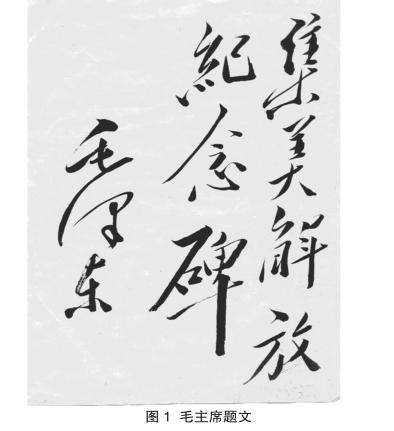 集美解放
紀念碑
毛泽东
图 1 毛主席题文